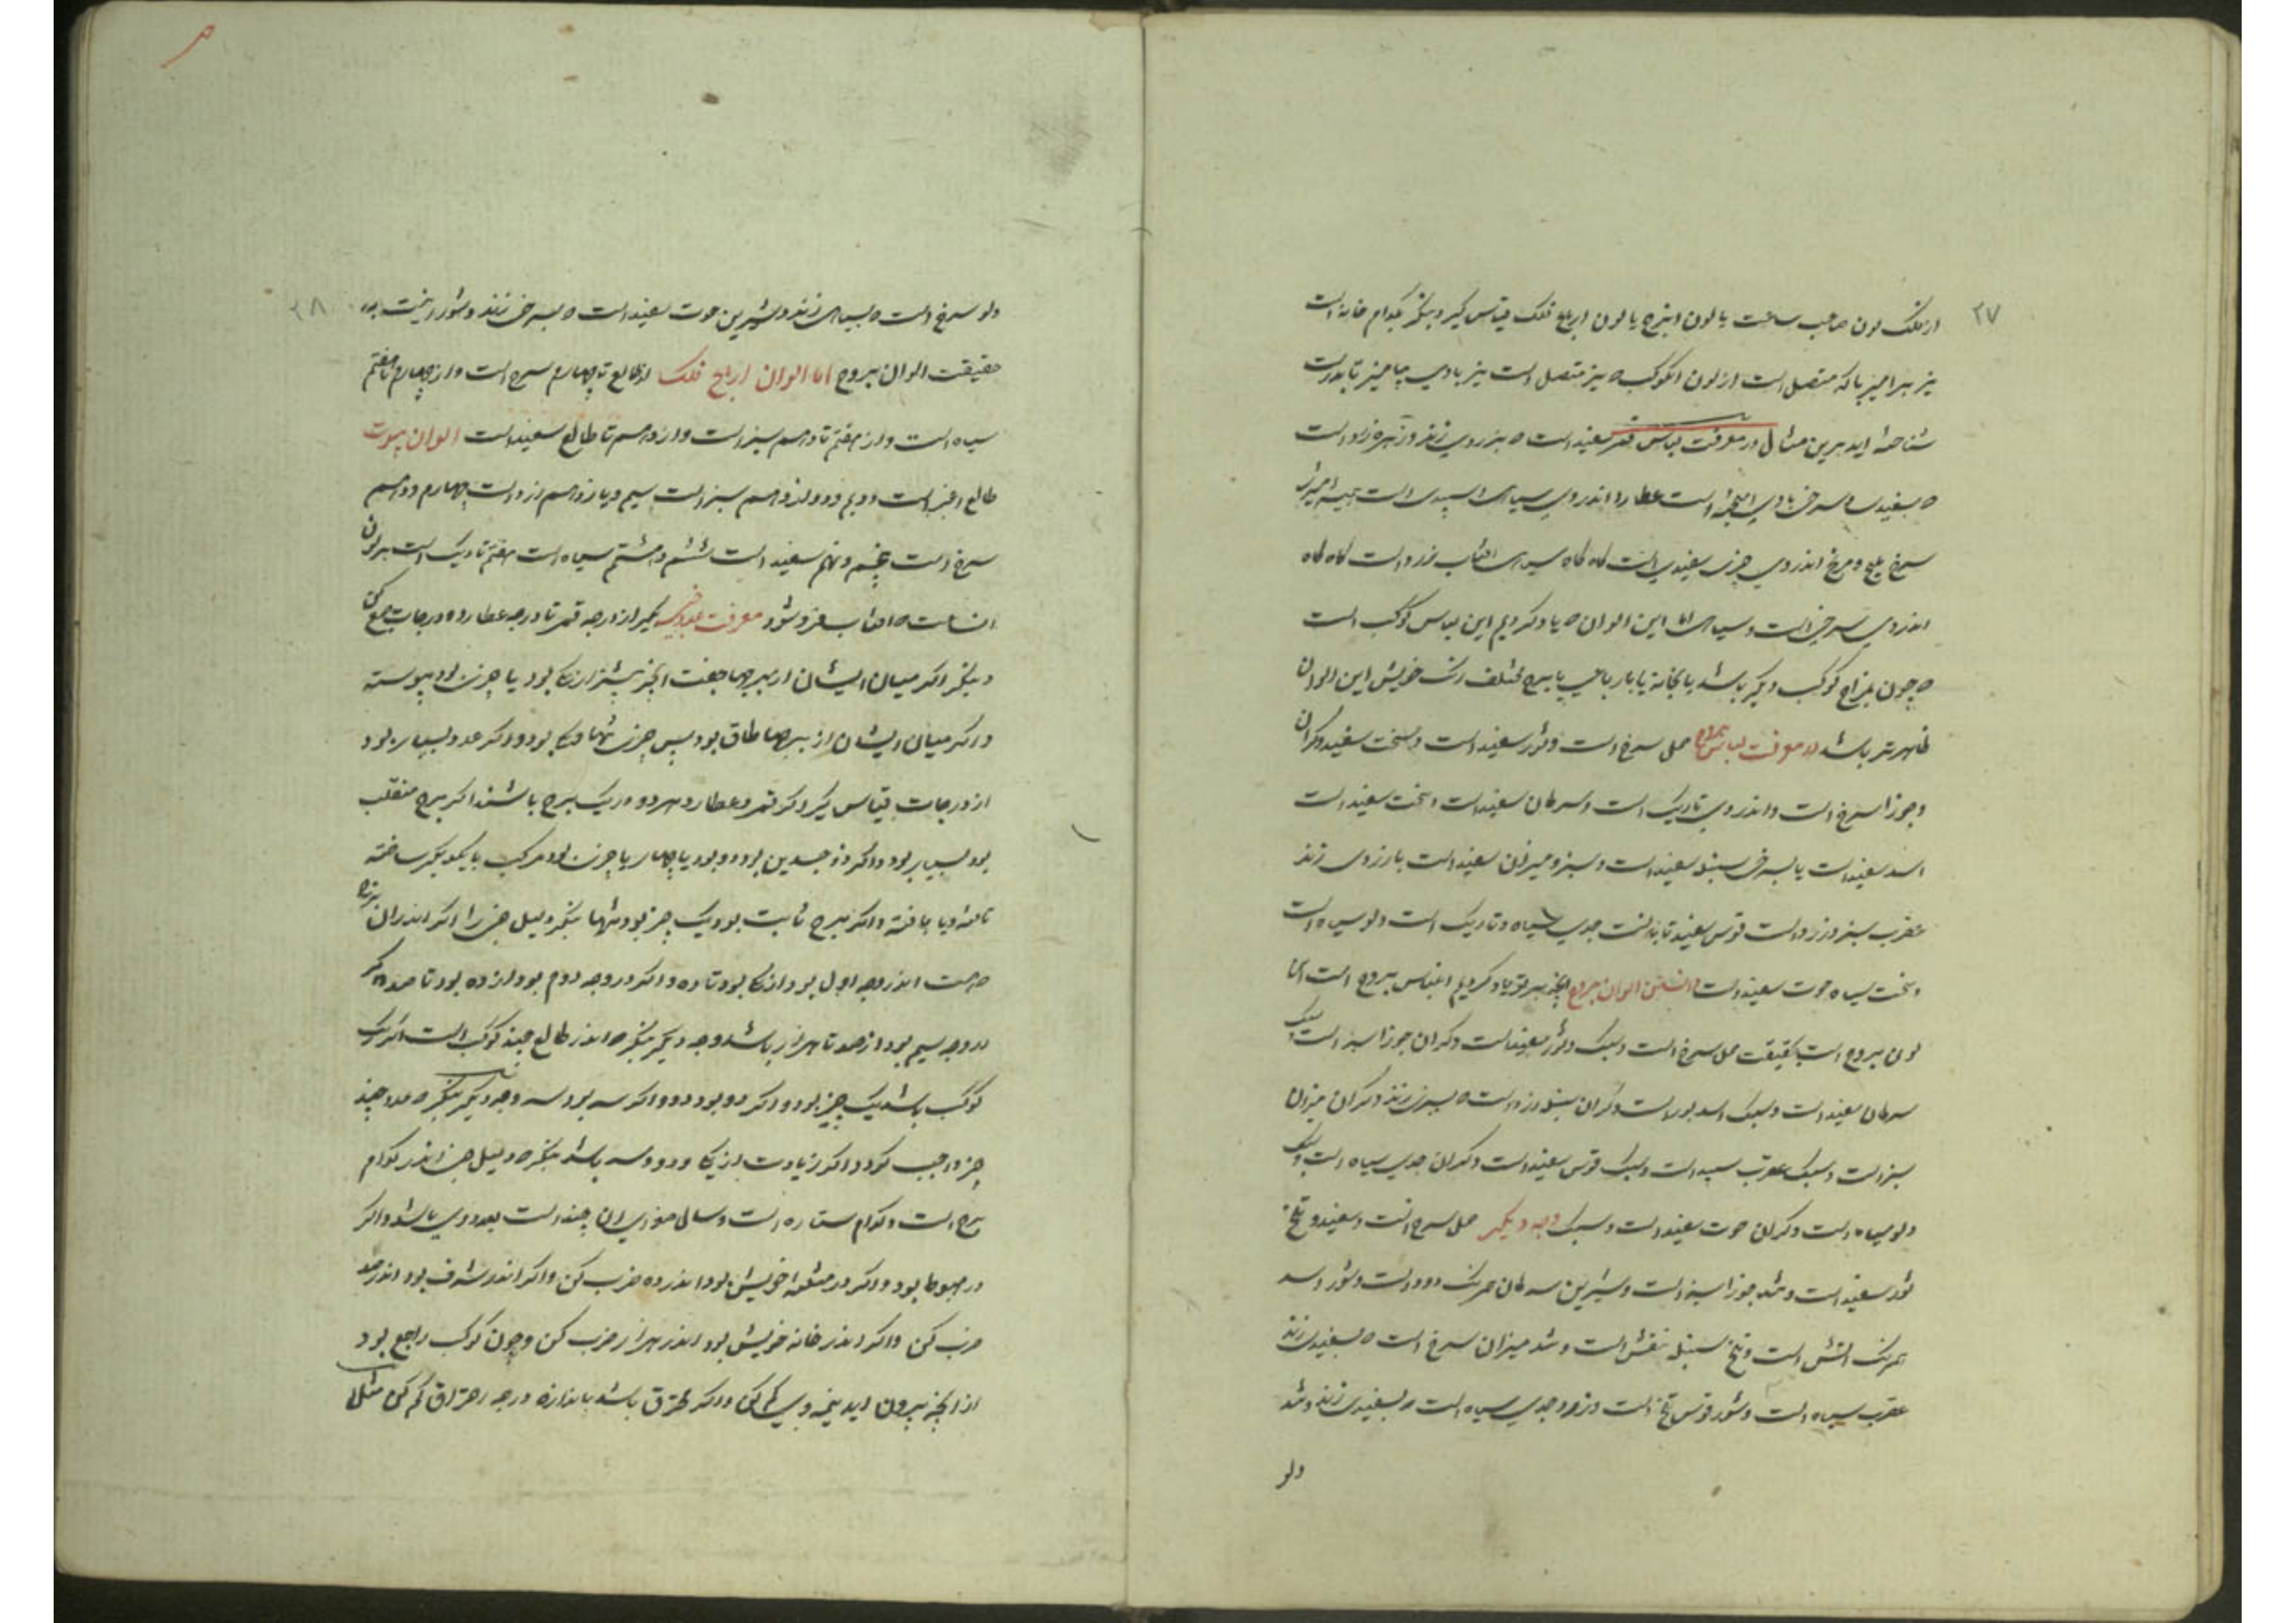 ۳۷
از فلک لون صاحب ساعت یا لون ابرج یا لون ارباع فلک قیاس گیر و بنگر بکدام خانه است
نیز برامیز با که متصل است از لون آن کوکب که نیز متصل است نیز با وی بیامیز تا بدرست
شناخته اید برین مثال در معرفت لباس قمر سفید است که بزردی زند و زهره زرد است
که بسفیدی و سرخی با وی است عطارد اندر وی سیاهی و سپیدی است
سرخ و مریخ اندر وی چیزی سفیدی است گاه گاه سیاهی آفتاب زرد است گاه گاه
اندر وی سرخی است و سیاهی اما این الوان که یاد کردیم این لباس کوکب است
که چون بمزاج کوکب دیگر باشد یا بخانه یا با برج مختلف رنگ خویش این الوان
ظاهرتر باشد در معرفت لباس بروج حمل سرخ است و ثور سفید است و سخت سفید و گران
و جوزا سرخ است و اندر وی تاریک است و سرطان سفید است و سخت سفید است
اسد سفید است با سرخی سنبله سفید است و سبز و میزان سفید است با زردی زند
عقرب سبز و زرد است قوس سفید تابان است جدی سیاه و تاریک است دلو سیاه است
و سخت سیاه حوت سفید است دانستن الوان بروج آنچه یاد کردیم لباس بروج است اما
لون بروج است بحقیقت حمل سرخ است و سبک و ثور سفید است و گران جوزا سبز است و سبک
سرطان سفید است و سبک اسد بور است و گران سنبله زرد است که بسبزی زند و گران میزان
سبز است و سبک عقرب سپید است و سبک قوس سفید است و گران جدی سیاه است و سبک
دلو سیاه است و گران حوت سفید است و سبک وجه دیگر حمل سرخ است و سفید و تلخ
ثور سفید است و تند جوزا سبز است و شیرین سرطان همرنگ دود است و شور اسد
همرنگ آتش است و تلخ سنبله بنفش است و تند میزان سرخ است که بسفیدی زند
عقرب سیاه است و شور قوس تلخ است و زرد جدی سیاه است که بسفیدی زند و تند
دلو
۳۸
دلو سرخ است که بسیاهی زند و شیرین حوت سفید است که بسرخی زند و شور اینست
حقیقت الوان بروج اما الوان ارباع فلک از طالع تا چهارم سرخ است و از چهارم تا هفتم
سیاه است و از هفتم تا دهم سبز است و از دهم تا طالع سفید است الوان بیوت
طالع اغبر است دویم و دوازدهم سبز است سیم و یازدهم زرد است چهارم و دهم
سرخ است پنجم و نهم سفید است ششم و هشتم سیاه است هفتم تاریک است بر لون
آن ساعت که آفتاب فرو شود معرفت عدد بگیر از درجه قمر تا درجه عطارد و درجات جمع کن
و بنگر اگر میان ایشان از برجها جفت آنچیز بیشتر از یکی بود یا چیزی بود پیوسته
و اگر میان ایشان از برجها طاق بود پس چیزی تنها و یکی بود و اگر عدد بسیار بود
از درجات قیاس گیر و گر قمر و عطارد هر دو در یک برج باشند اگر برج منقلب
بود بسیار بود و اگر ذو جسدین بود دو بود یا چهار یا چیزی بود مرکب با یکدیگر ساخته
یافته و اگر برج ثابت بود یک چیز بود تنها بنگر دلیل چیز را اگر اندر آن برج
که هست اندر وجه اول بود از یکی بود تا ده و اگر در وجه دوم بود از ده بود تا صد و اگر
در وجه سیم بود از صد تا هزار باشد وجه دیگر بنگر که اندر طالع چند کوکب است اگر یک
کوکب باشد یک چیز بود و اگر دو بود دو و اگر سه بود سه وجه دیگر بنگر که عدد چند
چیز واجب کرد و اگر زیادت از یکی و دو و سه باشد بنگر که دلیل چیز اندر کدام
برج است و کدام ستاره است و سالهای صغرای آن چند است بعدد وی باشد و اگر
در هبوط بود و اگر در مثلثه خویش بود اندر ده ضرب کن و اگر اندر شرف بود اندر صد
ضرب کن و اگر اندر خانه خویش بود اندر هزار ضرب کن و چون کوکب راجع بود
از آنچه بیرون آید نیمه وی کم کن و اگر محترق باشد باندازه درجه احتراق کم کن مثلا